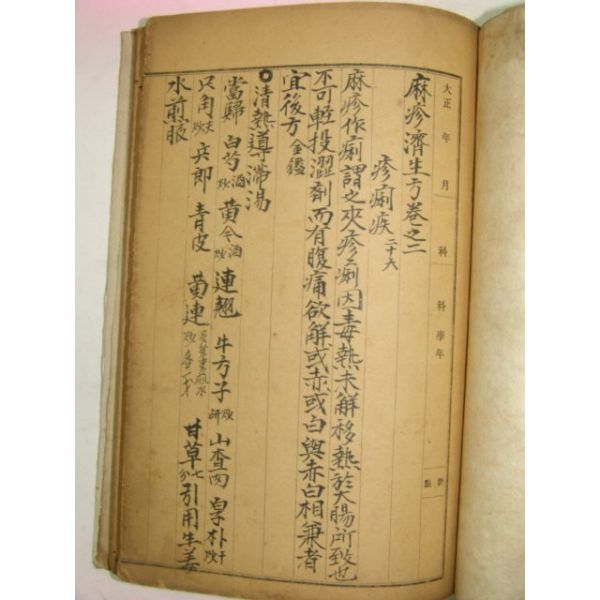 大正 年 月 科 科學年
麻疹濟生方卷之二
疹痢疾 二十六
麻疹作痢謂之夾疹痢因毒熱未解移熱於大腸所致也
不可輕投澀劑而有腹痛欲解或赤或白與赤白相兼者
宜後方 金鑑
淸熱導滯湯
當歸 白芍 酒炒 黃今 酒炒 連翹 牛方子 炒硏 山査肉 厚朴 干炒
只角 夫炒 兵郎 靑皮 黃連 甘草 七分 引用生姜
水煎服